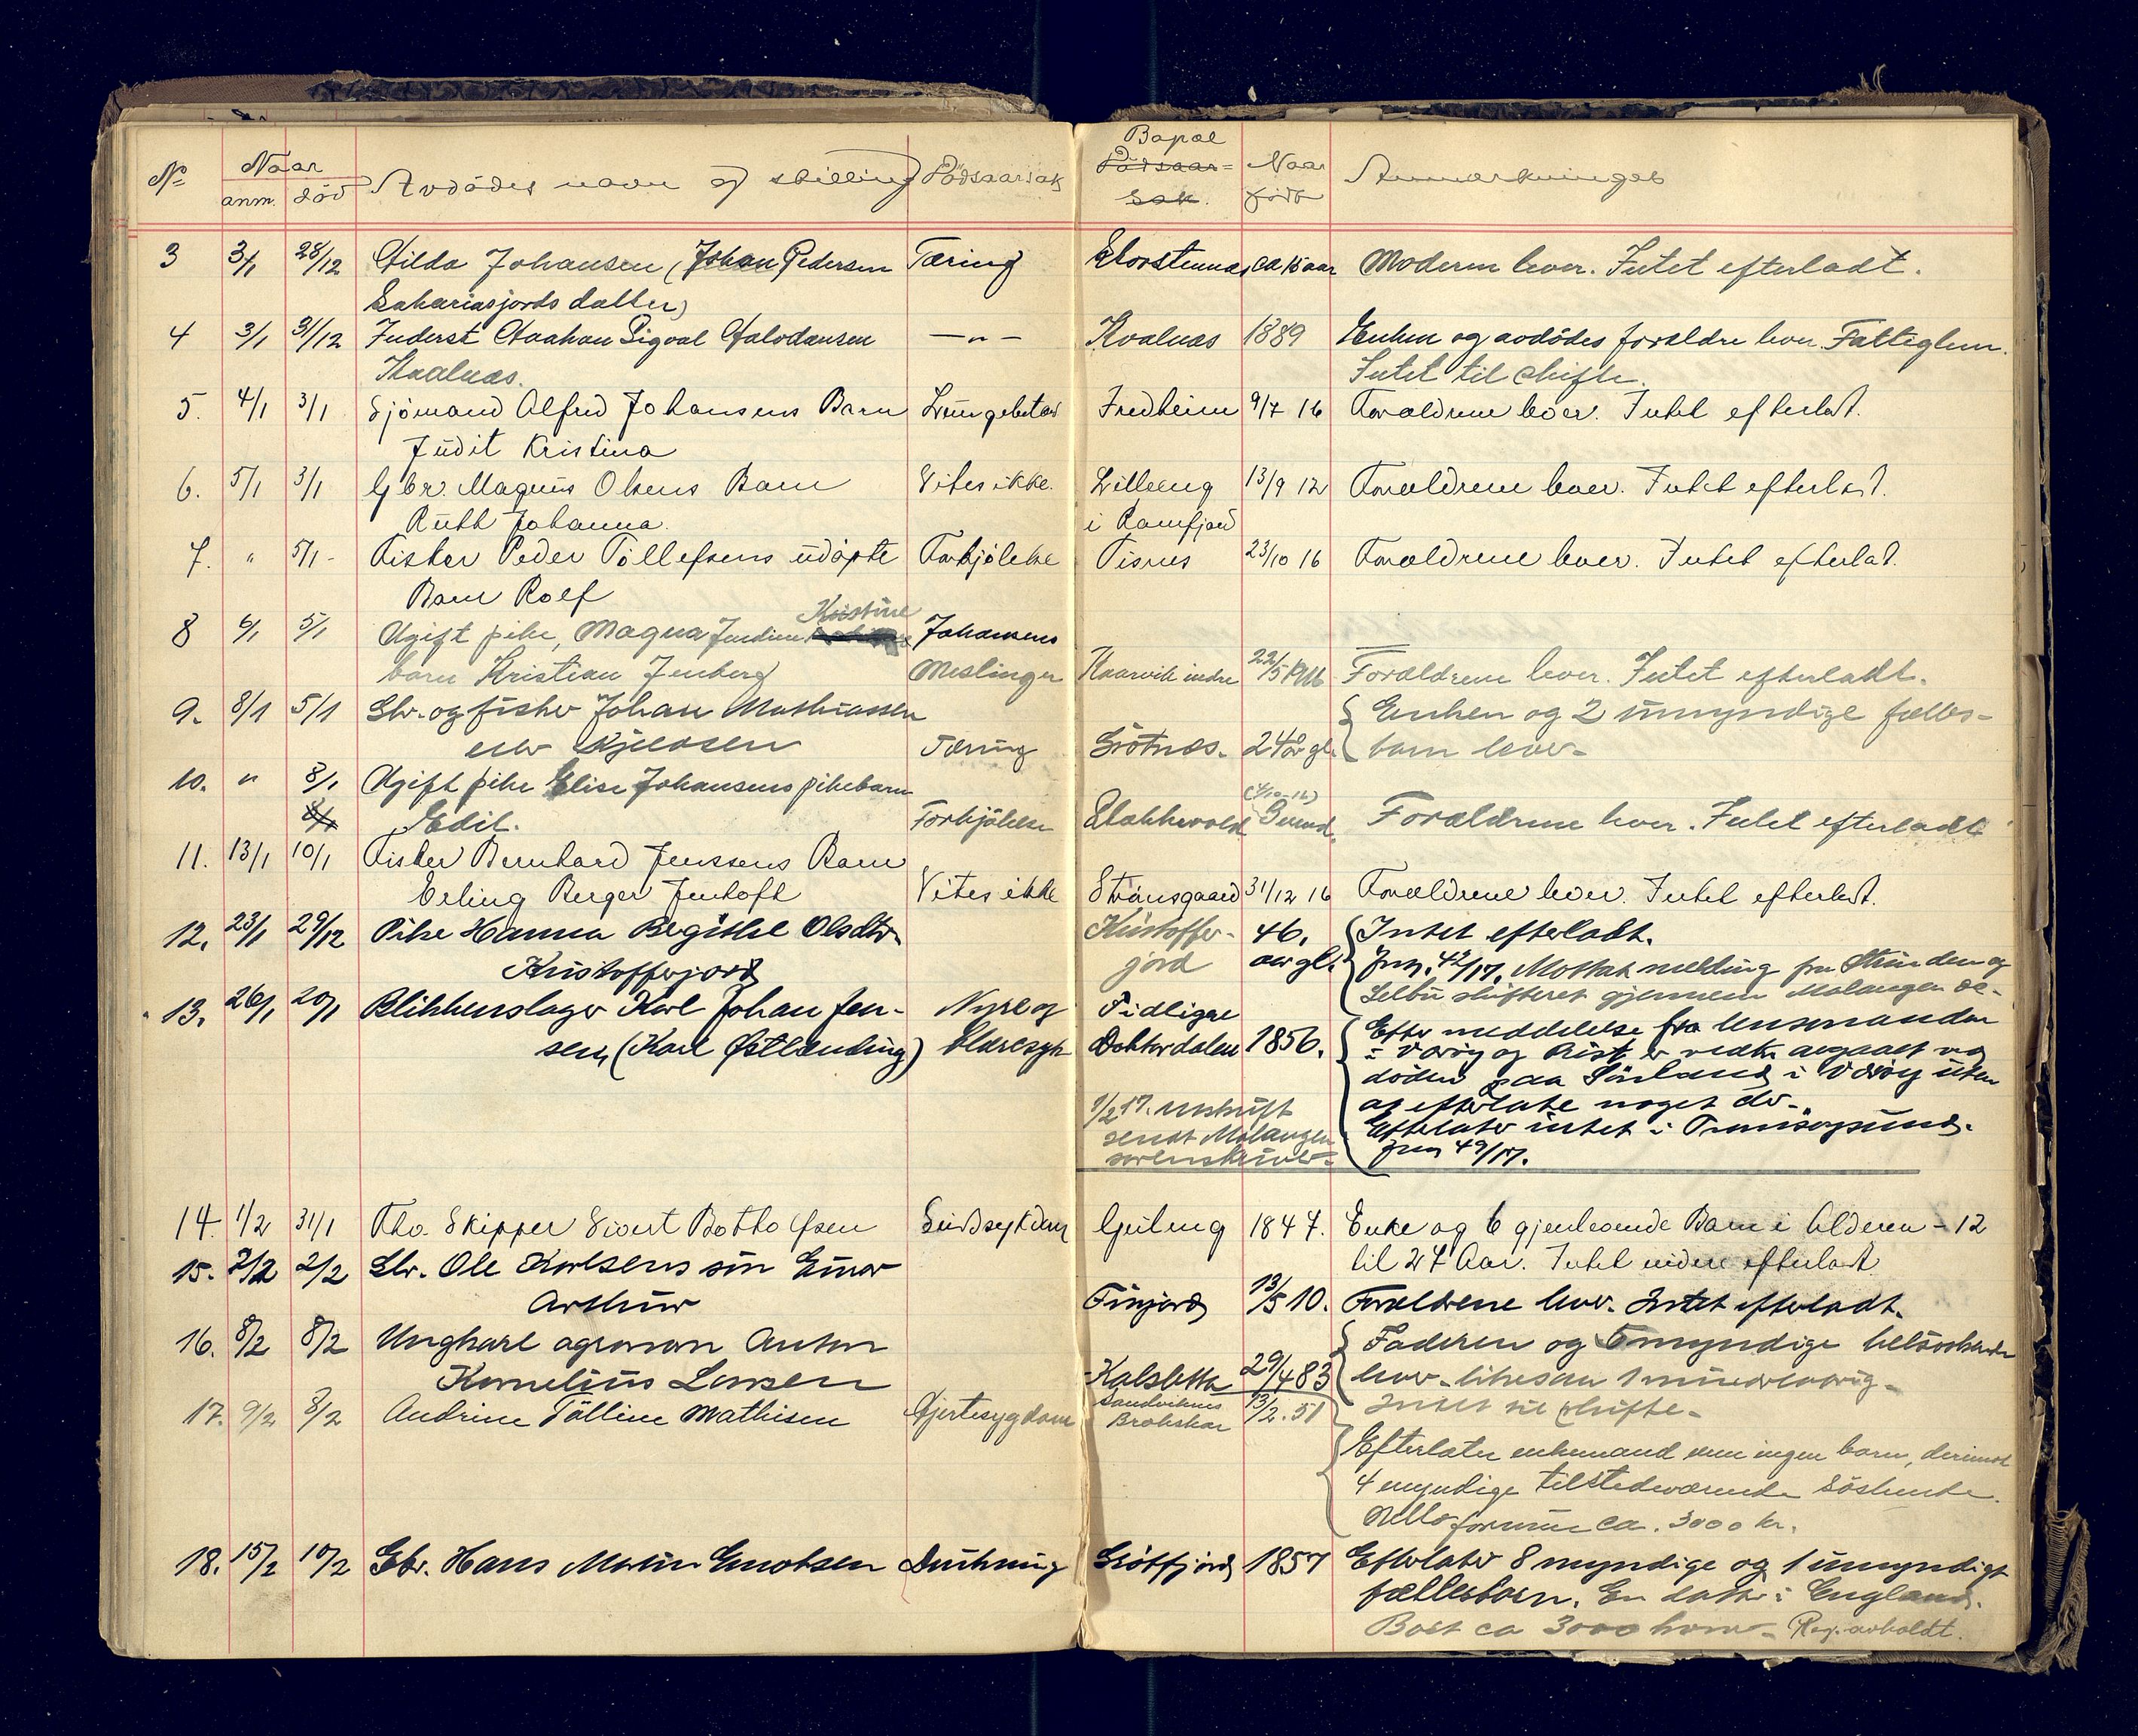 No Naar anm. död Avdödes navn og stilling Dödsaarsak Bopæl Dödsaar= sak. Naar född Anmerkninger
3 3/1 28/12 Hilda Johansen (Johan Pedersen Tæring ca 15 aar Moderen lever. Intet efterladt.
Sakariasjords datter)
4 3/1 31/12 Inderst Haakon Sigval Halvdansen —"— Kvalnes 1889 Enken og avdödes foreldre lever. Fattiglem.
Kvalnes. Intet til skifte.
5. 4/1 3/1 Sjömand Alfred Johansens Barn Lungebetæn Fredheim 9/7 16 Forældrene lever. Intet efterladt.
Judit Kristina
6. 5/1 3/1 Gbr. Magnus Olsens Barn Vites ikke. Lilleng 13/9 12 Forældrene lever. Intet efterladt.
Ruth Johanna. i Ramfjord
7. " 5/1 - Fisker Peder Tollefsens udöpte Forkjölelse Tisnes 23/10 16 Forældrene lever. Intet efterlat.
Barn Rolf
8 6/1 5/1 Ugift pike, Magna Jendine Kristine Johansens
barn Kristian Jenberg Meslinger Kaarvik indre 22/5 1916 Forældrene lever. Intet efterladt.
9. 8/1 5/1 Lbr. og fisker Johan Mathiassen Enken og 2 umyndige fælles-
eller Kjeldsen Tæring Grötnes. 24 år gl. barn lever.
10. " 8/1 Ugift pike Elise Johansens pikebarn (4/10-16)
8/1 Edit. Forkjölelse Stakkevold Forældrene lever. Intet efterladt
11. 13/1 10/1 Fisker Bernhard Jenssens Barn
Erling Berger Jentoft Vites ikke Strömsgaard 31/12 16 Forældrene lever. Intet efterladt.
12. 23/1 29/12 Pike Hanna Begitte Olsdtr. Kristoffer- 46. Intet efterladt.
Kristofferjord jord aar gl. Jrn. 42/17. Mottat melding fra Strinden og
Selbu skifteret gjennem Malangen
13. 26/1 20/1 Blikkenslager Karl Johan Jen- Nyre og Tidligere Efter meddelelse fra lensmanden
sen, (Karl Østlænding) blæresyk Doktordalen 1856. i Værøy og Røst er vedk. avgaaet ved
döden paa Sörland i Værøy uten
1/2 17. utskrift at efterlate noget der.
sendt Malangen Efterlater intet i Tromsøysund.
sorenskriver. Jrn 49/17.
14. 1/2 31/1 Fhv. Skipper Sivert Bottolfsen Sindsykdom Gjeileng 1847. Enke og 6 gjenlevende Barn i Alderen - 12
til 27 Aar. Intet videre efterladt.
15. 2/2 2/2 Lbr. Ole Karlsens sön Einar
Arthur Finjord 13/5 10. Forældrene lever. Intet efterladt.
16. 8/2 8/2 Ungkarl agronom Anton Faderen og 5 myndige helsöskende
Kornelius Larsen Kalsletta 29/4 83 lever - likesaa 1 mindreaarig.
17. 9/2 8/2 Andrine Tolline Mathisen Hjertesygdom Sandviknes Brokskar 13/2. 51 Intet til skifte.
Efterlater enkemand men ingen barn, derimot
4 myndige tilstedeværende söskende.
Netto formue ca. 3000 kr.
18. 15/2 10/2 Gbr. Hans Martin Enoksen Drukning Grötfjord 1857 Efterlater 8 myndige og 1 umyndigt
fællesbarn. En datter i England.
Boet ca 3000 kroner. Reg. avholdt.